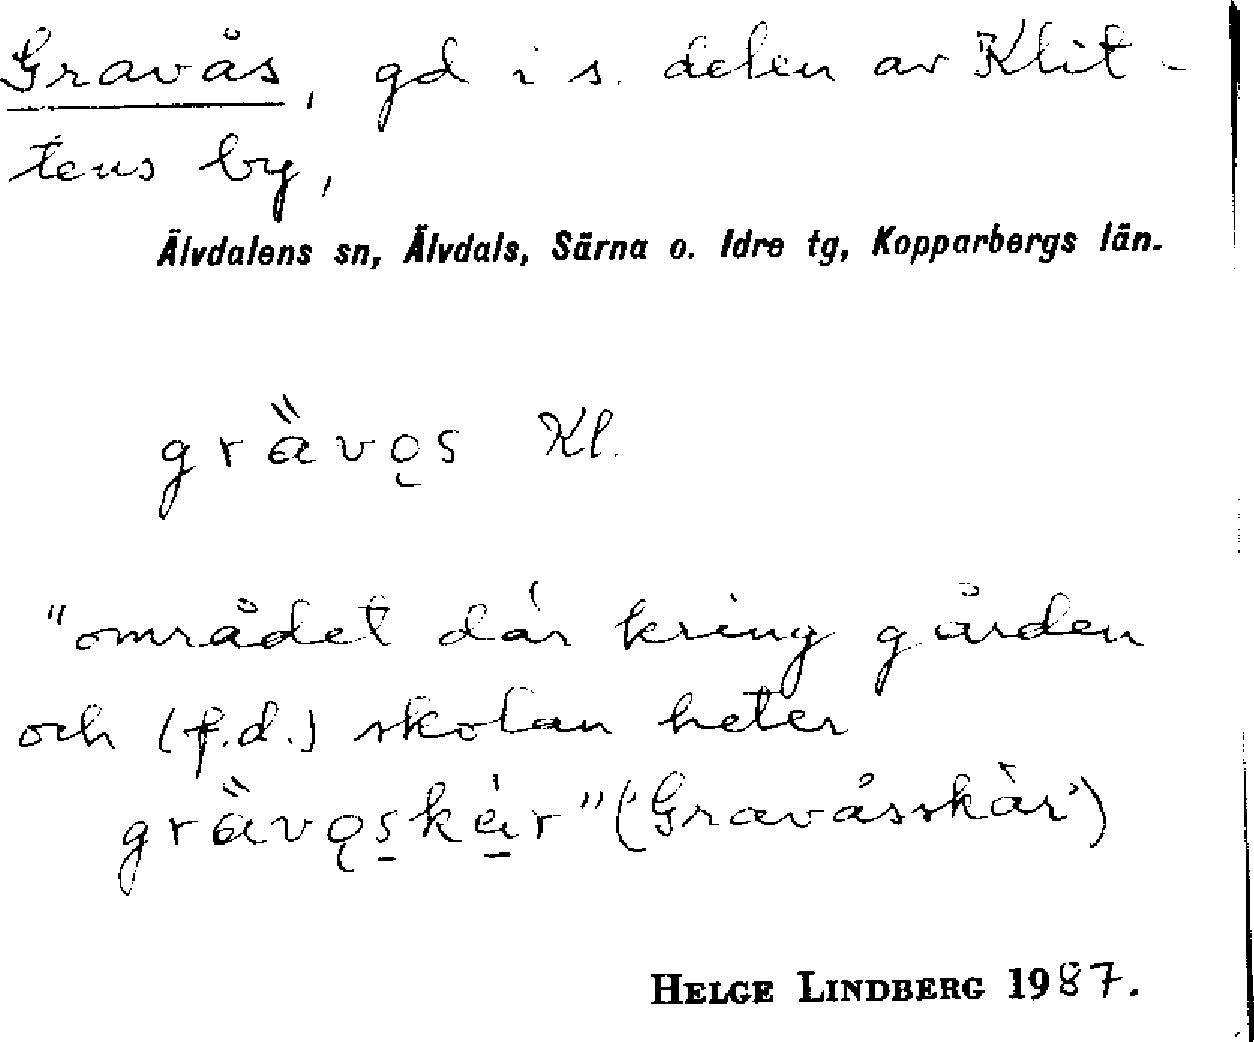 Gravås, gd i s. delen av Klit-
tens by,
Älvdalens sn, Älvdals, Särna o. Idre tg, Kopparbergs län.
grȁvo̜s Kl.
"området där kring gården
och (f.d.) skolan heter
grȁvo̜s̠kä̠́r" ('Gravåsskär')
HELGE LINDBERG 1987.